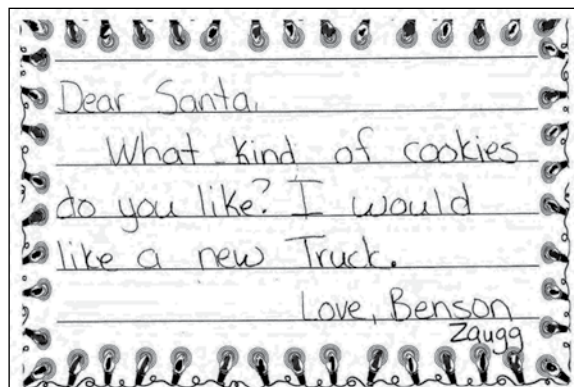 Dear Santa,
What kind of cookies
do you like? I would
like a new Truck.
Love, Benson
Zaugg